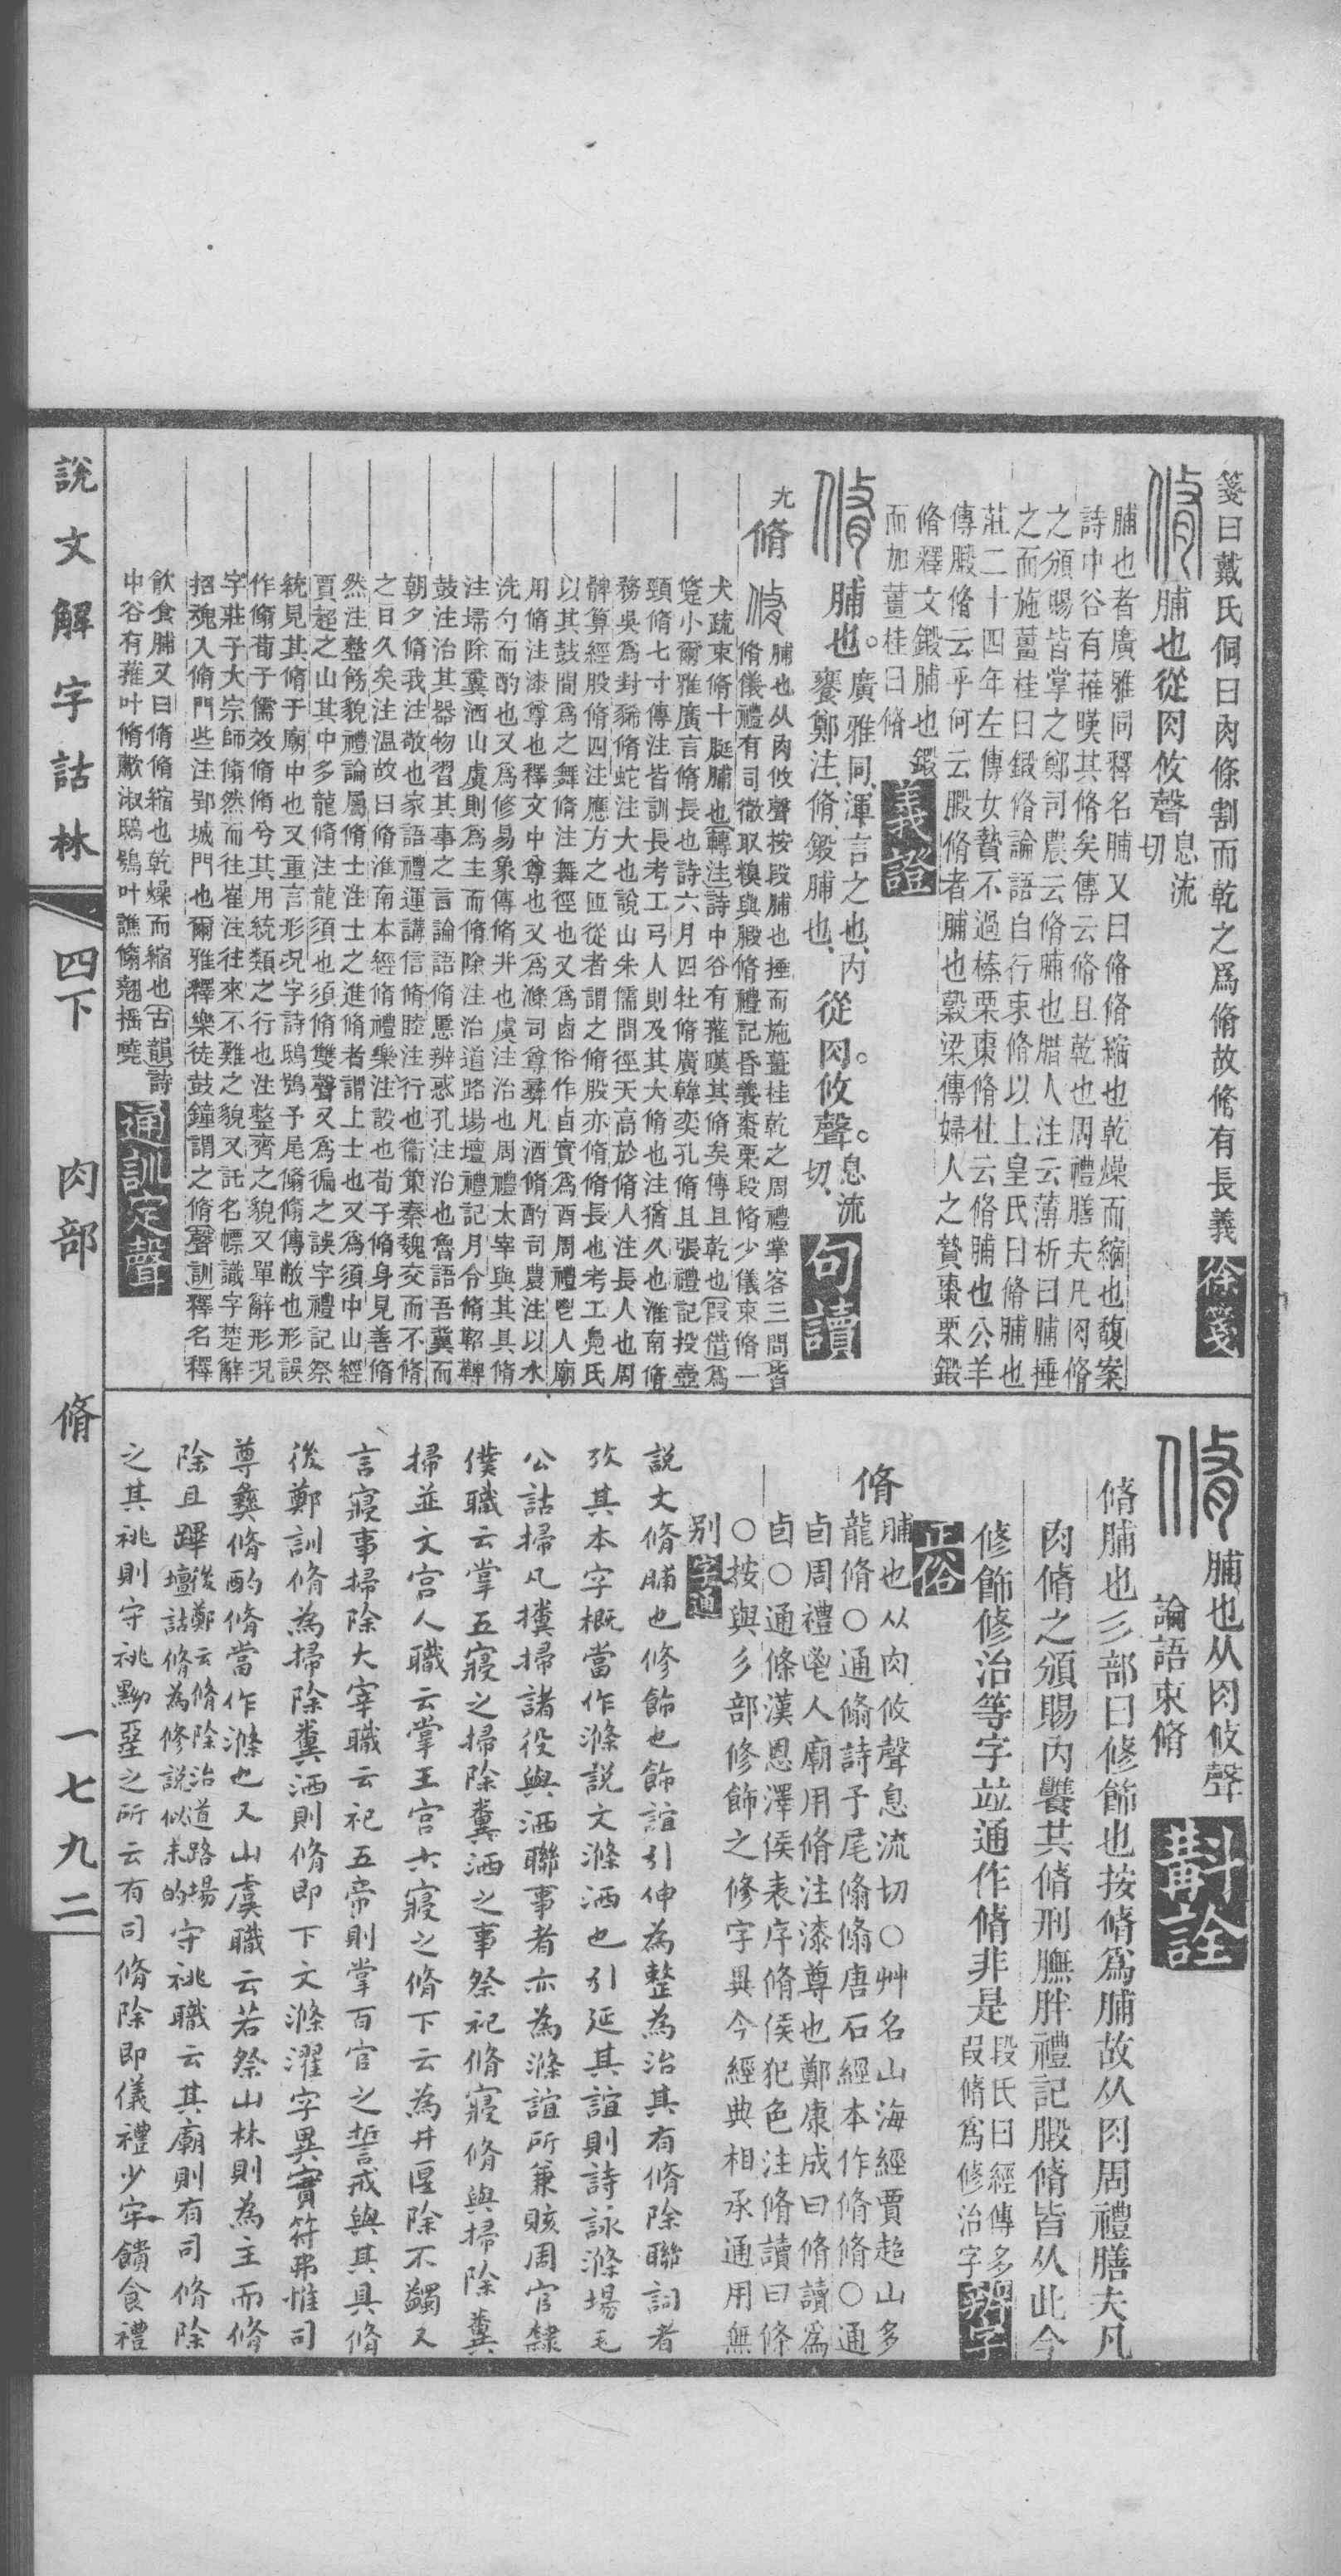 箋曰戴氏侗曰肉條割而乾之爲脩故脩有長義徐箋
脩脯也從肉攸聲息流切
脯也者廣雅同釋名脯又曰脩脩縮也乾燥而縮也馥案
詩中谷有蓷嘆其脩矣傳云脩且乾也周禮膳夫凡肉脩
之頒賜皆掌之鄭司農云脩脯也腊人注云薄析曰脯捶
之而施薑桂曰鍛脩論語自行束脩以上皇氏曰脩脯也
莊二十四年左傳女贄不過榛栗棗脩杜云脩脯也公羊
傳腶脩云乎何云腶脩者脯也穀梁傳婦人之贄棗栗鍛
脩釋文鍛脯也鍛
而加薑桂曰脩義證
脩脯也。廣雅同、渾言之也、内饔鄭注、脩、鍛脯也、從肉。攸聲。息流切、句讀
九脩脩脯也从肉攸聲按段脯也捶而施薑桂乾之周禮掌客三問皆
脩儀禮有司徹取糗與腶脩禮記昏義棗栗段脩少儀束脩一
犬疏束脩十脡脯也轉注詩中谷有蓷嘆其脩矣傳且乾也叚借爲
筵小爾雅廣言脩長也詩六月四牡脩廣韓奕孔脩且張禮記投壺
頸脩七寸傳注皆訓長考工弓人則及其大脩也注猶久也淮南脩
務吳爲封豨脩蛇注大也說山朱儒問徑天高於脩人注長人也周
髀算經股脩四注應方之匝從者謂之脩股亦脩脩長也考工鳧氏
以其鼓間爲之舞脩注舞徑也又爲卣俗作卣實爲酉周禮鬯人廟
用脩注漆尊也釋文中尊也又爲滌司尊彝凡酒脩酌司農注以水
洗勺而酌也又爲修易象傳脩井也虞注治也周禮太宰與其具脩
注埽除糞洒山虞則爲主而脩除注治道路場壇禮記月令脩鞀鞞
鼓注治其器物習其事之言論語脩慝辨惑孔注治也魯語吾冀而
朝夕脩我注敬也家語禮運講信脩睦注行也衞策秦魏交而不脩
之日久矣注温故曰脩淮南本經脩禮樂注設也荀子脩身見善脩
然注整飭貌禮論屬脩士注士之進脩者謂上士也又爲須中山經
賈超之山其中多龍脩注龍須也須脩雙聲又爲循之誤字禮記祭
統見其脩于廟中也又重言形況字詩鴟鴞予尾脩脩傳敝也形誤
作翛荀子儒效脩脩兮其用統類之行也注整齊之貌又單辭形況
字莊子大宗師翛然而往崔注往來不難之貌又託名幖識字楚辭
招魂入脩門些注郢城門也爾雅釋樂徒鼓鐘謂之脩聲訓釋名釋
飮食脯又曰脩脩縮也乾燥而縮也古韻詩
中谷有蓷叶脩歗淑鴟鴞叶譙翛翹搖曉通訓定聲
脩脯也从肉攸聲論語束脩斠詮
脩脯也彡部曰修飾也按脩爲脯故从肉周禮膳夫凡
肉脩之頒賜内饔其脩刑膴胖禮記腶脩皆从此今
修飾修治等字竝通作脩非是段氏曰經傳多叚脩爲修治字辨字
正俗
脩脯也从肉攸聲息流切○艸名山海經賈超山多
龍脩○通翛詩予尾翛翛唐石經本作脩脩○通
卣周禮鬯人廟用脩注漆尊也鄭康成曰脩讀爲
卣○通條漢恩澤侯表序脩侯犯色注脩讀曰條
○按與彡部修飾之修字異今經典相承通用無
别字通
說文脩脯也修飾也飾誼引伸為整為治其有脩除聯詞者
攷其本字概當作滌說文滌洒也引延其誼則詩詠滌場毛
公詁掃凡㩓掃諸役與洒聯事者亦為滌誼所兼賅周官隸
僕職云掌五寢之掃除糞洒之事祭祀脩寢脩與掃除糞
掃並文宮人職云掌王宮六寢之脩下云為井匽除不蠲又
言寢事掃除大宰職云祀五帝則掌百官之誓戒與其具脩
後鄭訓脩為掃除糞洒則脩即下文滌濯字異實符弗惟司
尊彝脩酌脩當作滌也又山虞職云若祭山林則為主而脩
除且蹕後鄭云脩除治道路場壇詁脩為修說似未的守祧職云其廟則有司脩除
之其祧則守祧黝堊之所云有司脩除即儀禮少牢饋食禮
說文解字詁林 四下 肉部 脩 一七九二